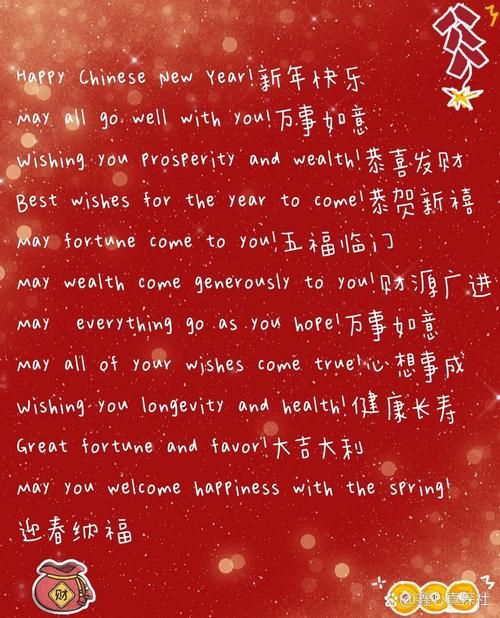 Happy Chinese New Year!新年快乐
may all go well with you!万事如意
Wishing you prosperity and wealth!恭喜发财
Best wishes for the year to come!恭贺新禧
may fortune come to you!五福临门
may wealth come generously to you!财源广进
may everything go as you hope!万事如意
may all of your wishes come true!心想事成
Wishing you longevity and health!健康长寿
Great fortune and favor!大吉大利
may you welcome happiness with the spring!
迎春纳福
财
@鑫心真探社